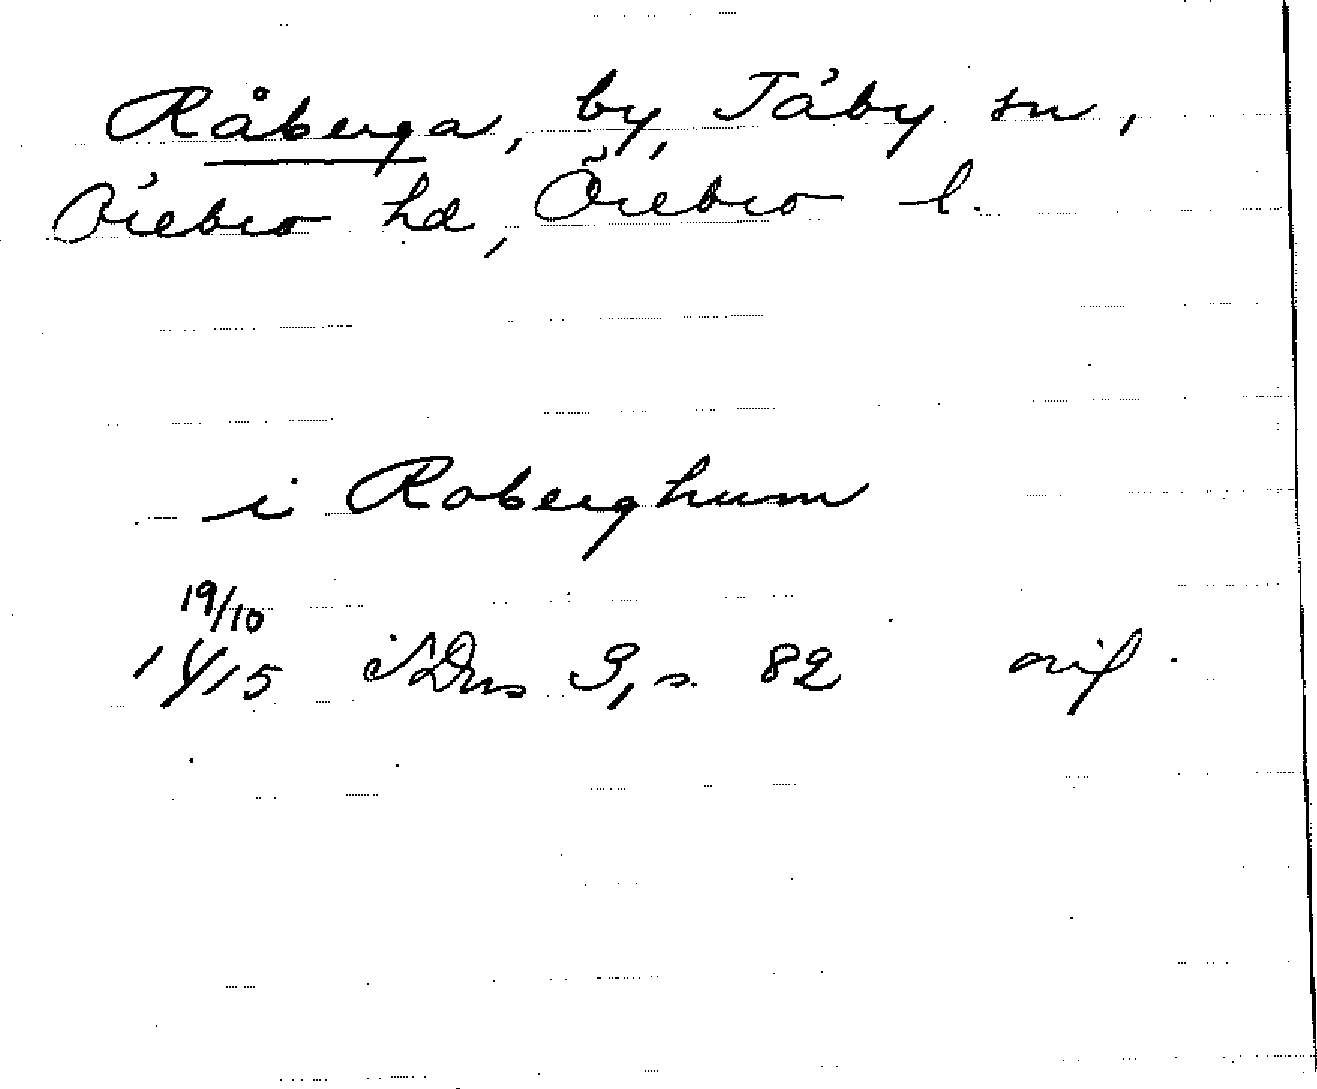 Råberga, by, Täby sn,
Örebro hd, Örebro l.
i Roberghum
19/10
1415 SDns 3, s. 82 avs.